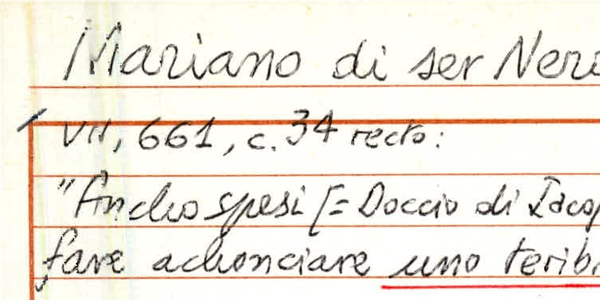 Mariano di ser Nero
VII, 661, c. 34 recto:
"Ancho spesi [= Doccio di Iacop
fare achonciare uno terib